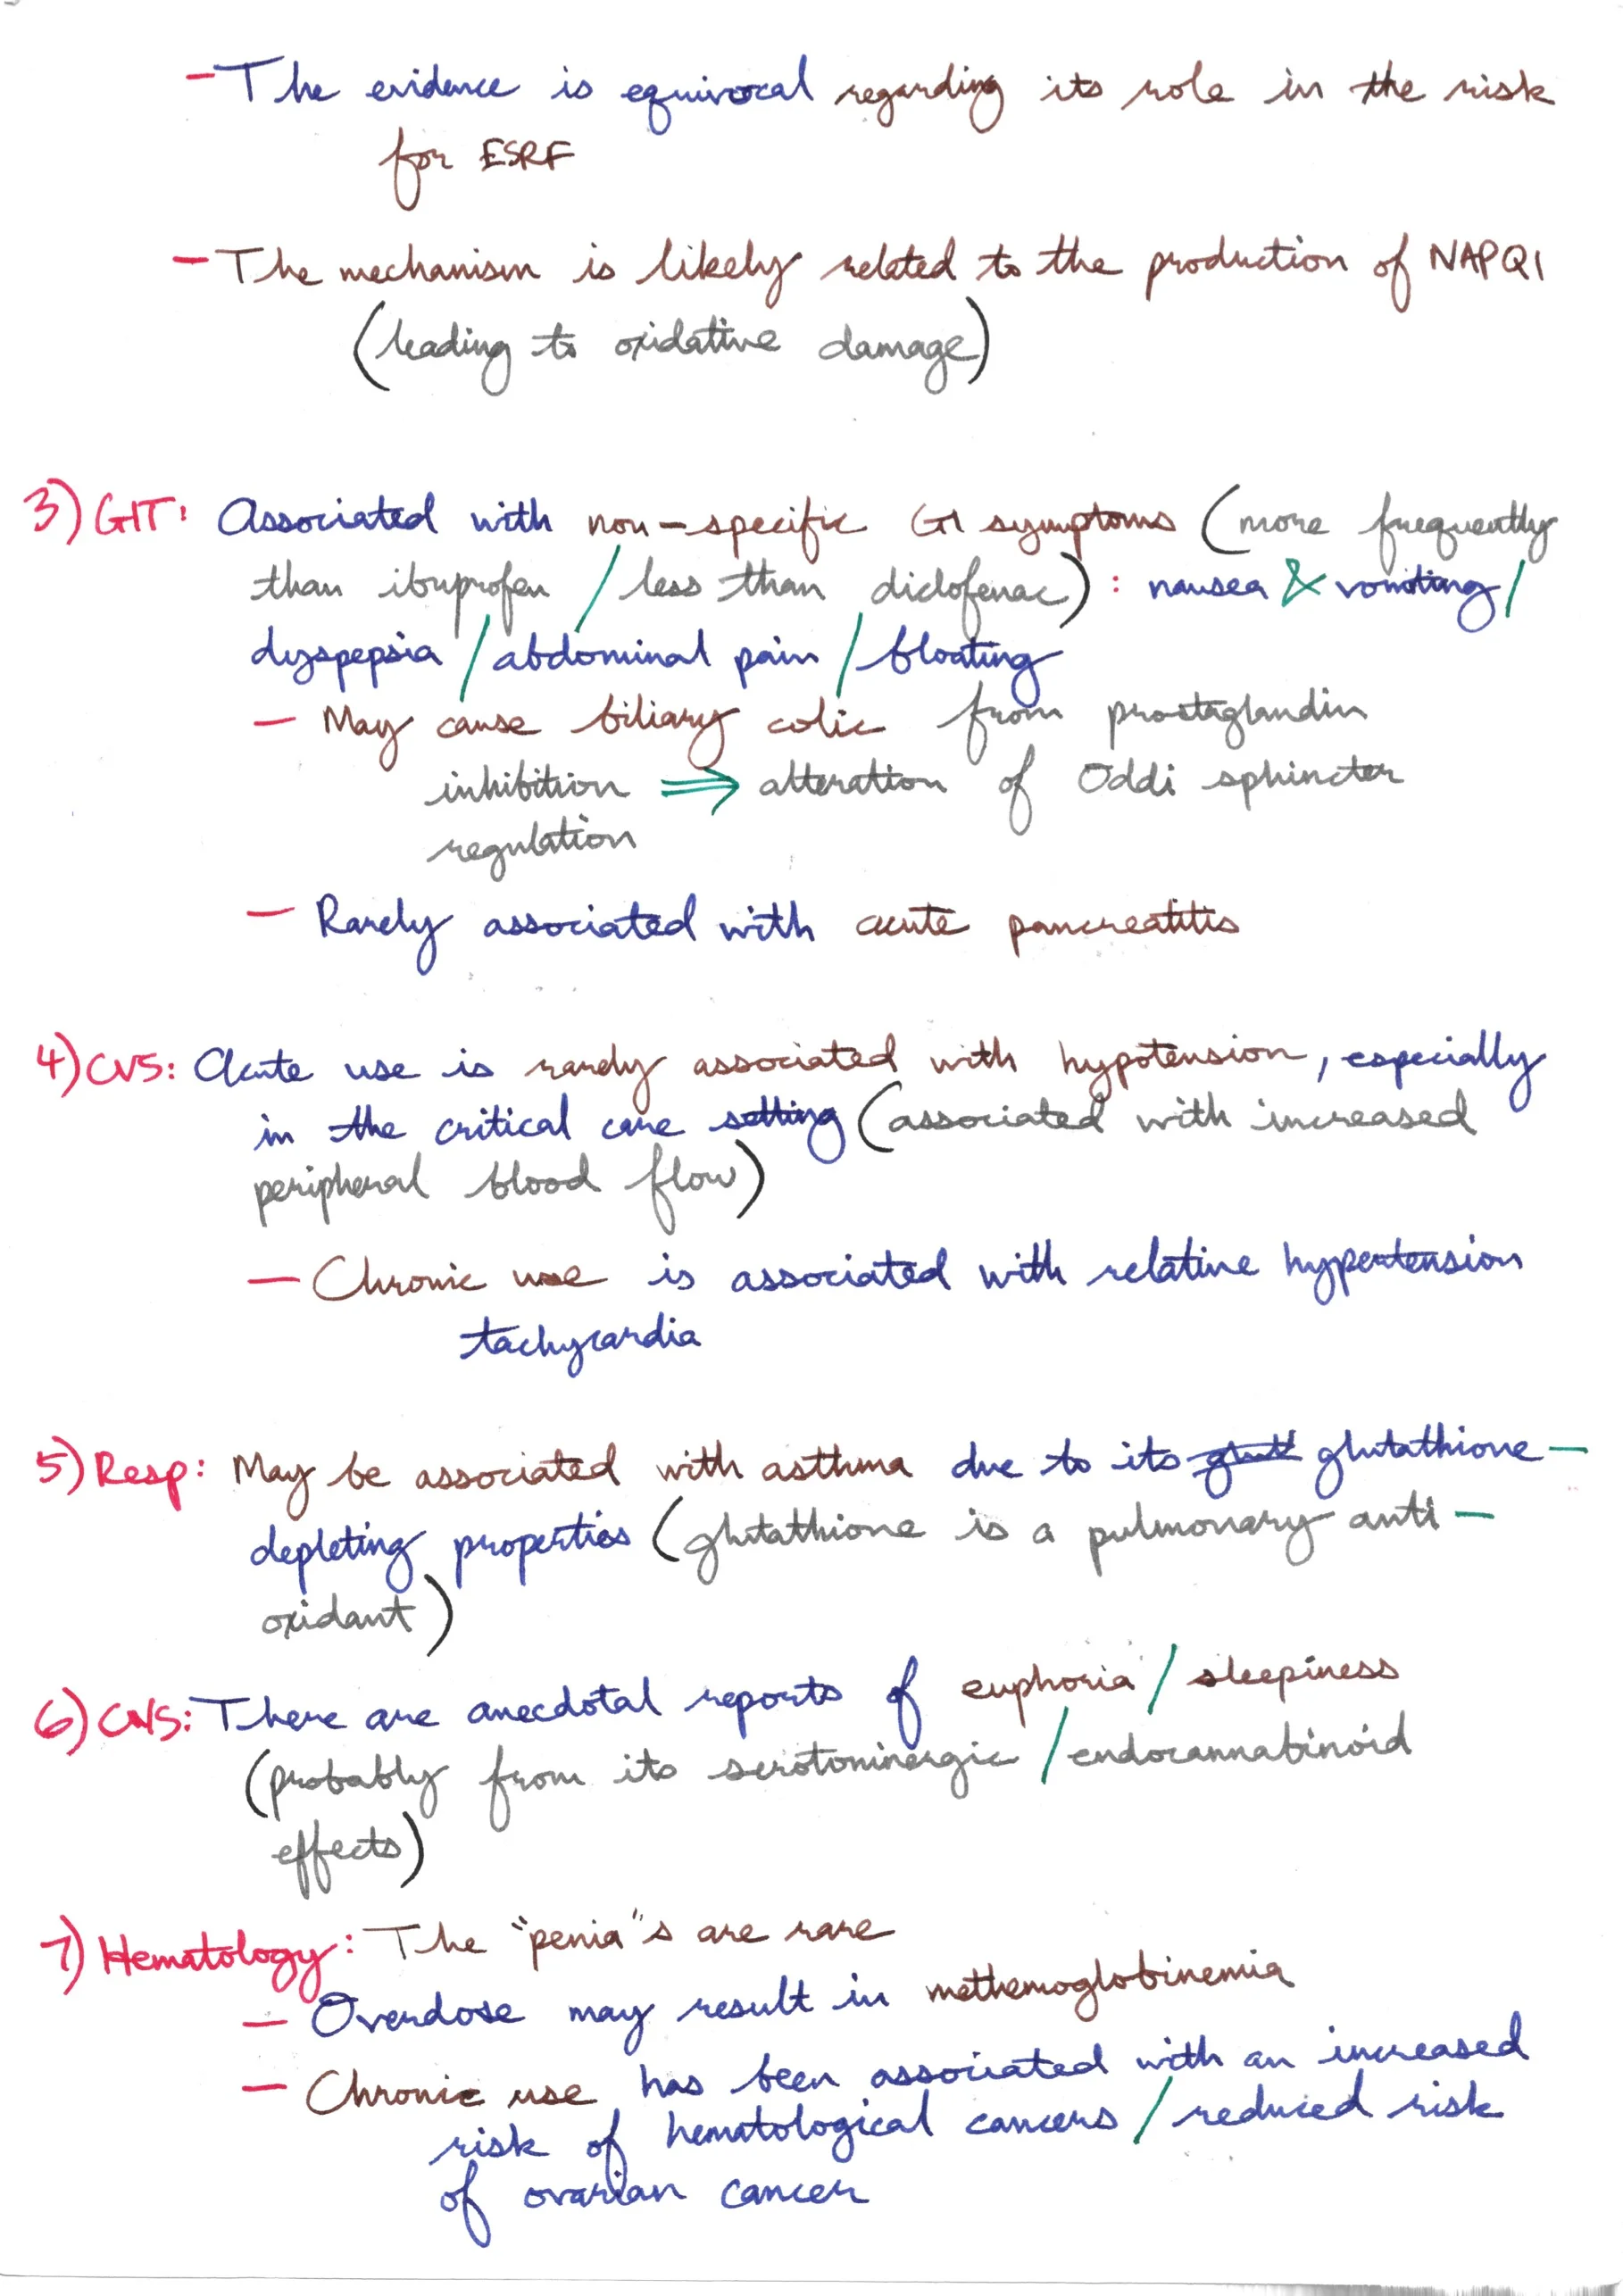 - The evidence is equivocal regarding its role in the risk
for ESRF
- The mechanism is likely related to the production of NAPQI
(leading to oxidative damage)
3) GIT: Associated with non-specific GI symptoms (more frequently
than ibuprofen / less than diclofenac) : nausea & vomiting /
dyspepsia / abdominal pain / bloating
- May cause biliary colic from prostaglandin
inhibition ⇒ alteration of Oddi sphincter
regulation
- Rarely associated with acute pancreatitis
4) CVS: Acute use is rarely associated with hypotension, especially
in the critical care setting (associated with increased
peripheral blood flow)
- Chronic use is associated with relative hypertension
tachycardia
5) Resp: May be associated with asthma due to its glutathione-
depleting properties (glutathione is a pulmonary anti-
oxidant)
6) CNS: There are anecdotal reports of euphoria / sleepiness
(probably from its serotoninergic / endocannabinoid
effects)
7) Hematology: The "penia"s are rare
- Overdose may result in methemoglobinemia
- Chronic use has been associated with an increased
risk of hematological cancers / reduced risk
of ovarian cancer